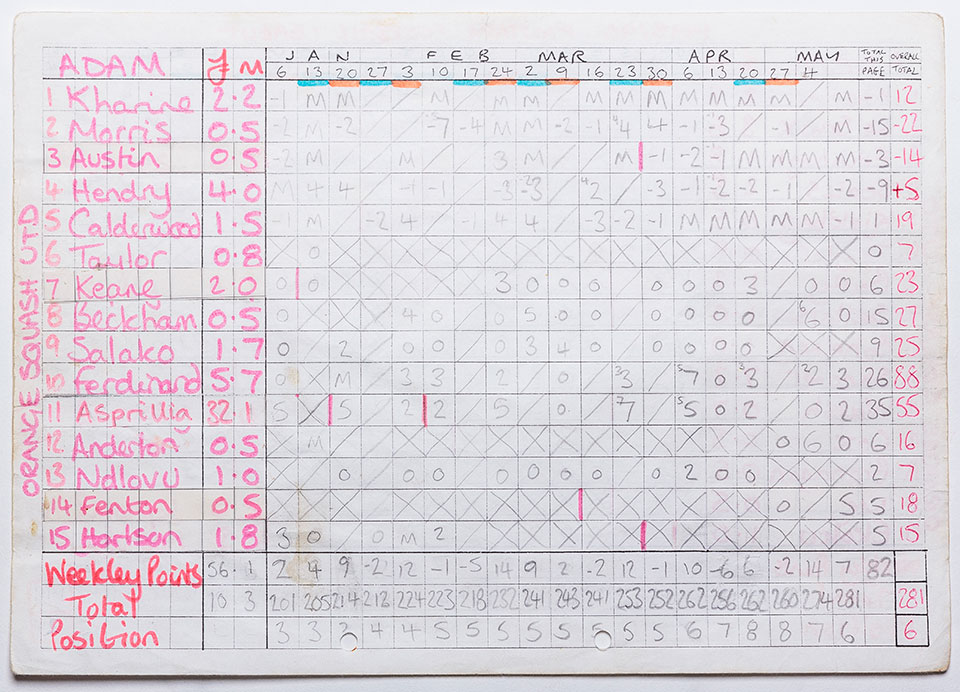 J A N F E B MAR APR MAY TOTAL THIS PAGE OVERALL TOTAL
ADAM £ M 6 13 20 27 3 10 17 24 2 9 16 23 30 6 13 20 27 4
1 Kharine 2.2 -1 M M / / M / M M / M M M M M M M / M -1 12
2 Morris 0.5 -2 M -2 / / -7 -4 M M -2 -1 4 4 -1 -3 / -1 / M -15 -22
3 Austin 0.5 -2 M / / M / / 3 M / / M -1 -2 -1 M M M M -3 -14
4 Hendry 4.0 M 4 4 / -1 -1 / -3 -3 / 2 / -3 -1 -2 -2 -1 / -2 -9 +5
5 Calderwood 1.5 -1 M / -2 4 / -1 4 4 / -3 -2 -1 M M M M M -1 1 19
6 Taylor 0.8 0 X X X X X X X X X X X X X X X X 0 7
7 Keane 2.0 0 3 0 0 0 0 0 0 0 3 / 0 0 6 23
8 Beckham 0.5 X X X 4 0 0 5 0 0 0 0 0 0 6 0 15 27
9 Salako 1.7 0 2 0 0 0 3 4 0 0 0 0 0 X X X 9 25
10 Ferdinand 5.7 0 X M / 3 3 / 2 / 0 / 3 / 7 0 3 / 2 3 26 88
11 Asprillia 32.1 5 X 5 / 2 2 / 5 / 0 / 7 / 5 0 2 / 0 2 35 55
12 Anderton 0.5 M 0 6 0 6 16
13 Ndlovu 1.0 0 0 0 0 0 0 0 0 0 2 0 0 X X X 2 7
14 Fenton 0.5 0 5 5 18
15 Hartson 1.8 3 0 0 M 2 5 15
Weekley Points 56.1 2 4 9 -2 12 -1 -5 14 9 2 -2 12 -1 10 -6 6 -2 14 7 82
Total 10 3 201 205 214 212 224 223 218 232 241 243 241 253 252 262 256 262 260 274 281 281
Position 3 3 3 4 4 5 5 5 5 5 5 5 5 6 7 8 8 7 6 6
ORANGE SQUASH UTD